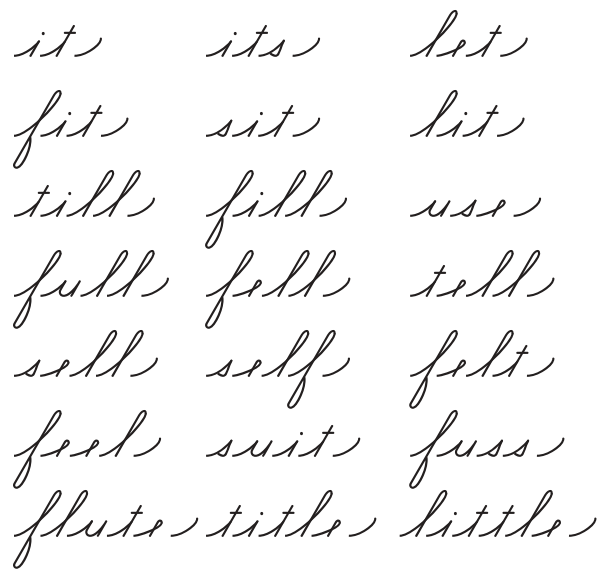 it its let
fit sit lit
till fill use
full fell tell
sell self felt
feel suit fuss
flute title little